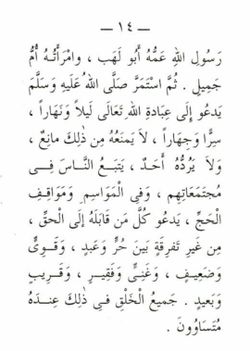 — ١٤ —
رَسُولِ اللهِ عَمُّهُ أَبُو لَهَبٍ ، وامْرَأَتُـهُ أُمُّ
جَمِيلٍ . ثُمَّ اسْتَمَرَّ صَلَّى اللهُ عَلَيْهِ وَسَلَّمَ
يَدعُو إِلَى عِبَادَةِ اللهِ تَعَالَى لَيلاً وَنَهَاراً ،
سِرًّا وَجِهَاراً ، لاَ يَمنَعُهُ مِن ذلِكَ مَانِعٌ ،
وَلاَ يَرُدُّهُ أَحَـدٌ ، يَتبَـعُ النَّـاسَ فِـى
مُجتَمَعَاتِهِم ، وَفِي الْمَوَاسِـمِ وَمَوَاقِـفِ
الْحَجِّ ، يَدعُو كُلَّ مَن قَابَلَهُ إِلَى الْحَقِّ ،
مِن غَيرِ تَفرِقَةٍ بَينَ حُرٍّ وَعَبدٍ ، وَقَـوِىٍّ
وَضَعِيـفٍ ، وَغَنِىٍّ وَفَقِيـرٍ ، وَقَـرِيـبٍ
وَبَعِيدٍ . جَمِيعُ الْخَلْقِ فِى ذلِكَ عِندَهُ
مُتَسَاوُونَ .